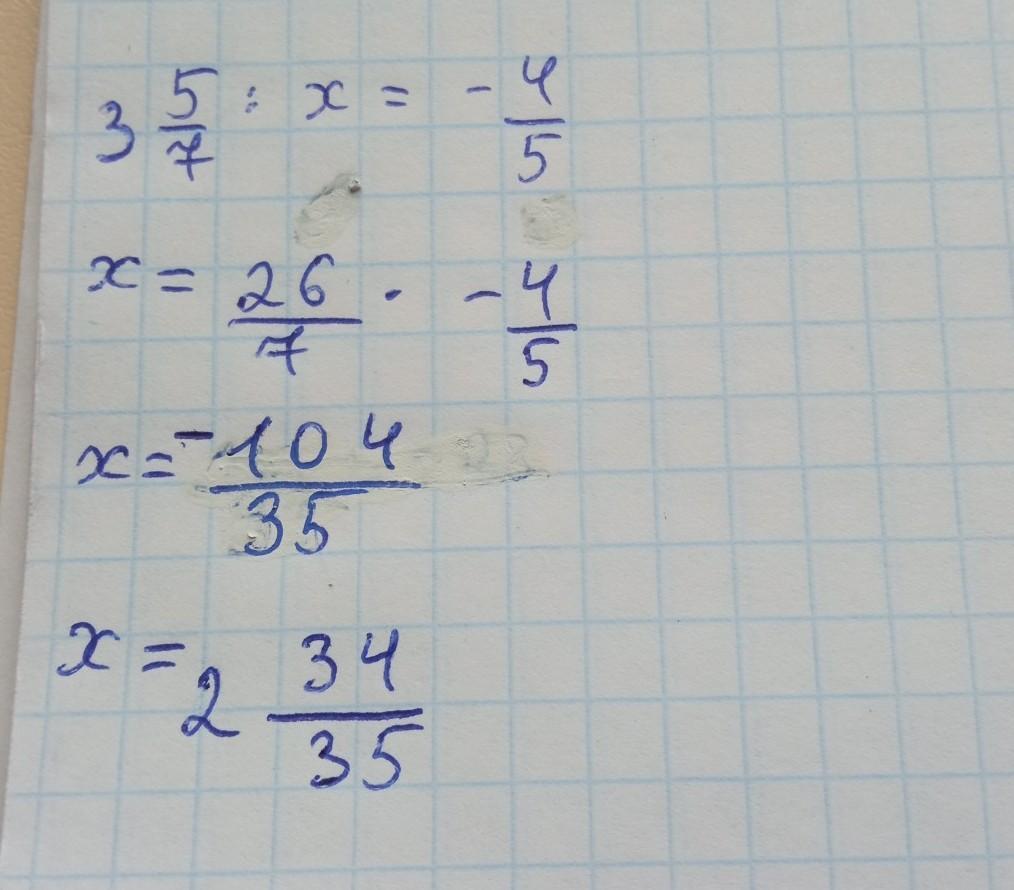 3 5/7 : x = - 4/5
x = 26/7 · - 4/5
x = - 104/35
x = 2 34/35